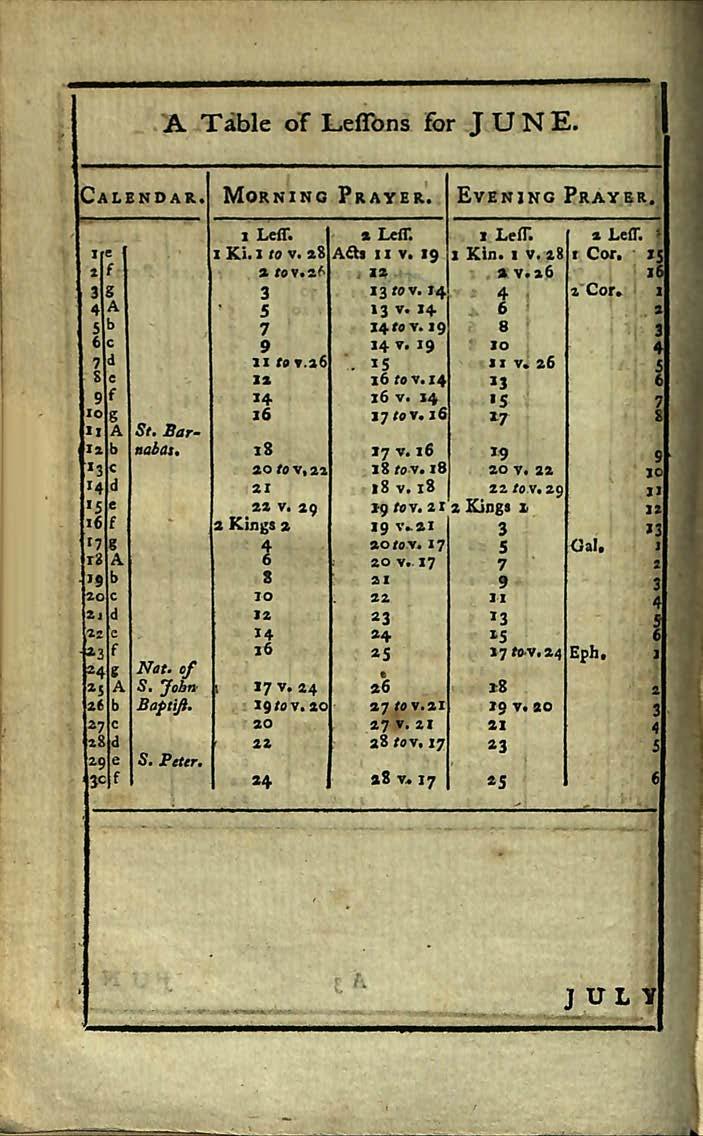 A Table of Leſſons for JUNE.
CALENDAR. MORNING PRAYER. EVENING PRAYER.
1 Leſſ. 2 Leſſ. 1 Leſſ. 2 Leſſ.
1 e 1 Ki. 1 to v. 28 Acts 11 v. 19 1 Kin. 1 v. 28 1 Cor. 15
2 f 2 to v. 26 12 2 v. 26 16
3 g 3 13 to v. 14 4 2 Cor. 1
4 A 5 13 v. 14 6 2
5 b 7 14 to v. 19 8 3
6 c 9 14 v. 19 10 4
7 d 11 to v. 26 15 11 v. 26 5
8 e 12 16 to v. 14 13 6
9 f 14 16 v. 14 15 7
10 g 16 17 to v. 16 17 8
11 A St. Bar-
12 b nabas. 18 17 v. 16 19 9
13 c 20 to v, 22 18 to v. 18 20 v. 22 10
14 d 21 18 v. 18 22 to v. 29 11
15 e 22 v. 29 19 to v. 21 2 Kings 1 12
16 f 2 Kings 2 19 v. 21 3 13
17 g 4 20 to v. 17 5 Gal. 1
18 A 6 20 v. 17 7 2
19 b 8 21 9 3
20 c 10 22 11 4
21 d 12 23 13 5
22 e 14 24 15 6
23 f 16 25 17 to v. 24 Eph. 1
24 g Nat. of
25 A S. John 17 v. 24 26 18 2
26 b Baptiſt. 19 to v. 20 27 to v. 21 19 v. 20 3
27 c 20 27 v. 21 21 4
28 d 22 28 to v. 17 23 5
29 e S. Peter.
30 f 24 28 v. 17 25 6
JULY